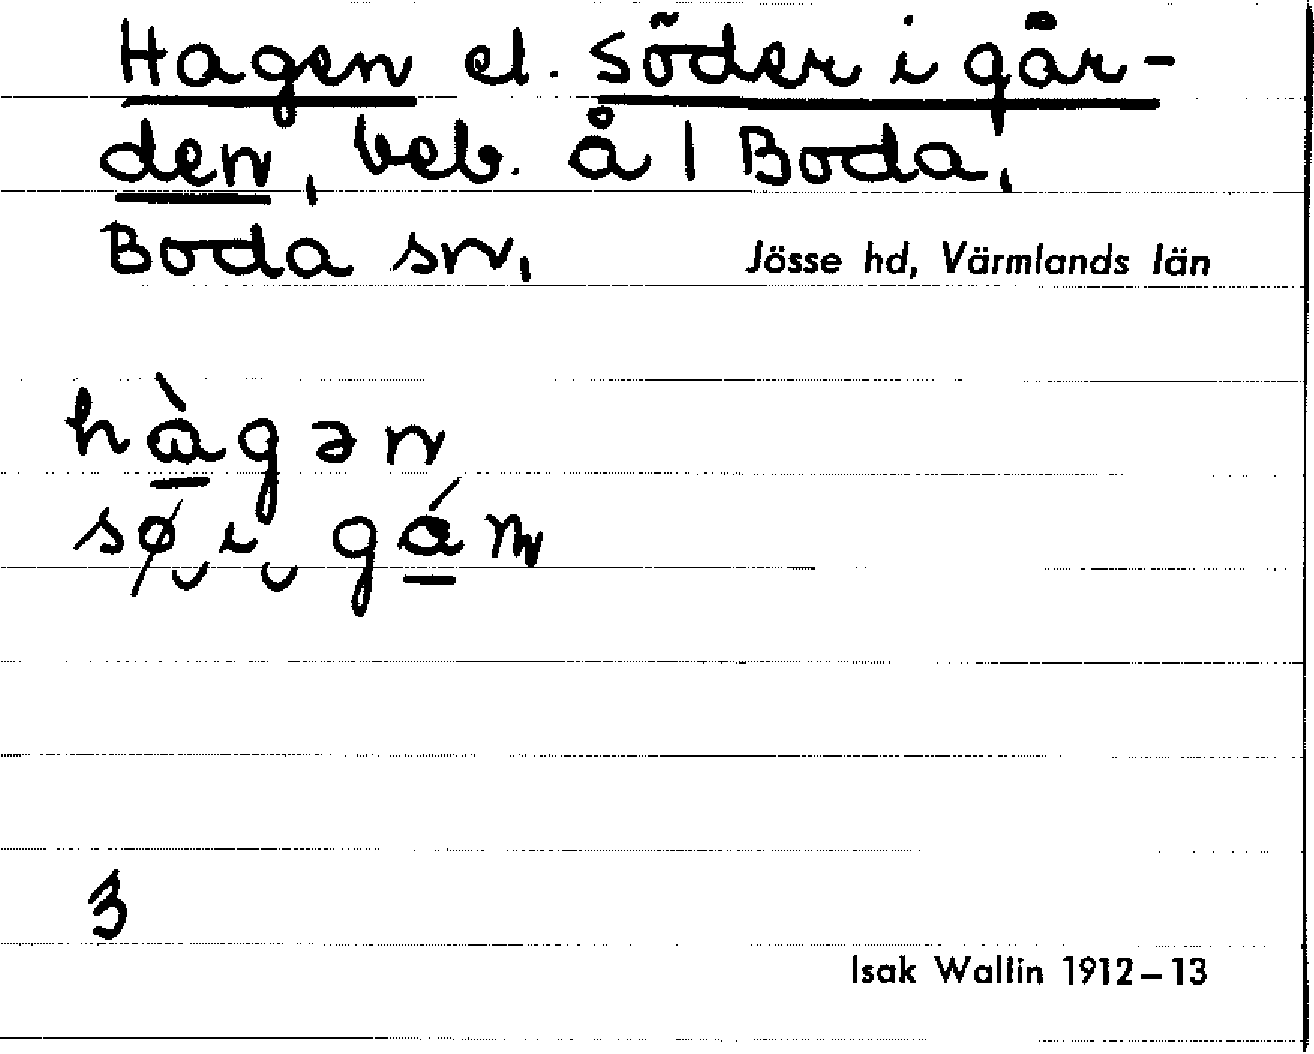 Hagen el. Söder i går-
den, beb. å 1 Boda,
Boda sn,
Jösse hd, Värmlands län
hàgən
sø i gán
3
Isak Wallin 1912–13